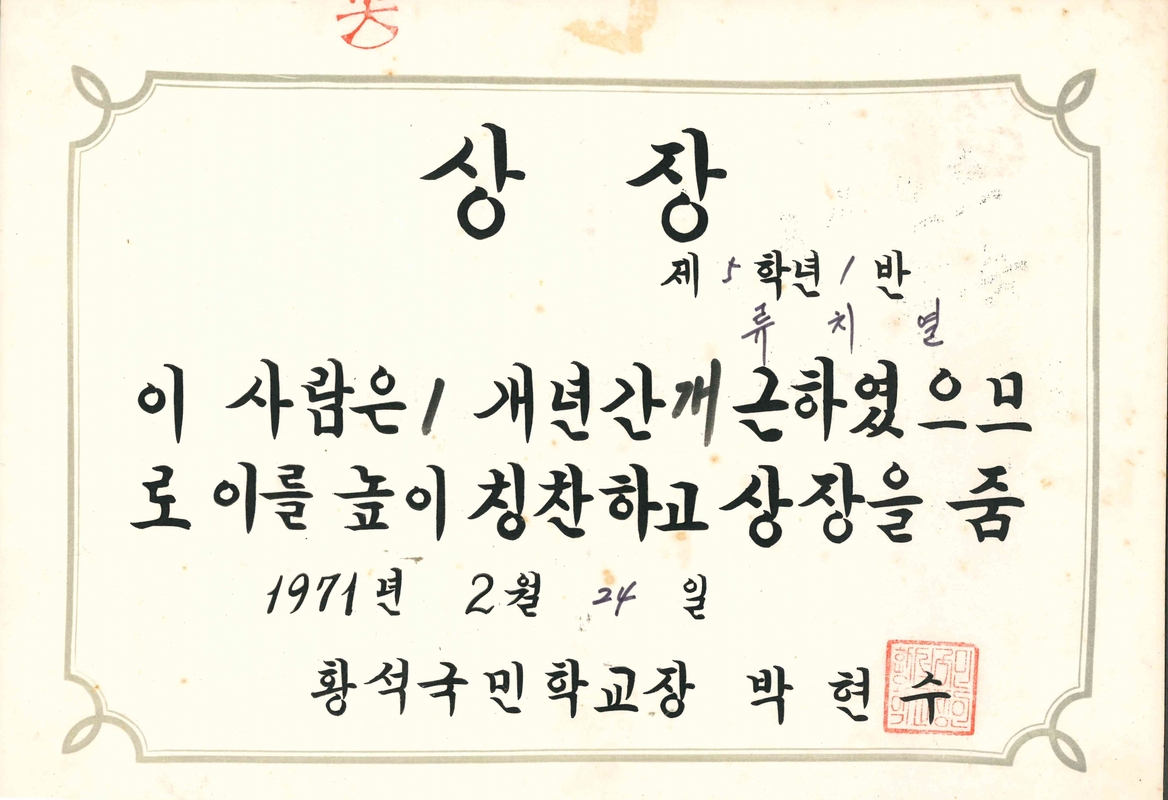 상 장
제 5 학년 1 반
류 치 열
이 사람은 1 개년간 개근하였으므
로 이를 높이 칭찬하고 상장을 줌
1971년 2월 24 일
황석국민학교장 박 현 수